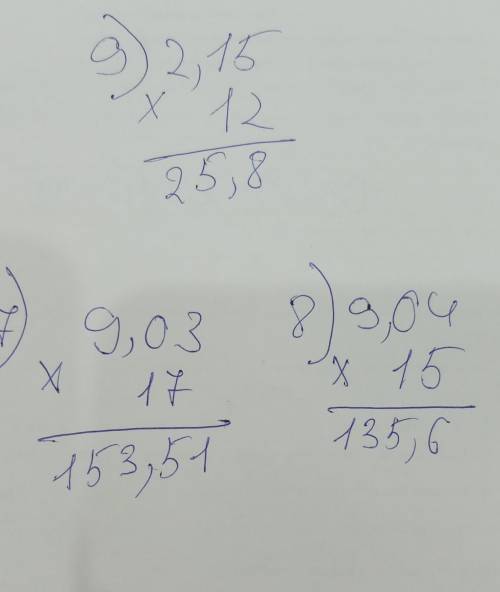 9) 2,15
x 12
25,8
7) 9,03
x 17
153,51
8) 9,04
x 15
135,6